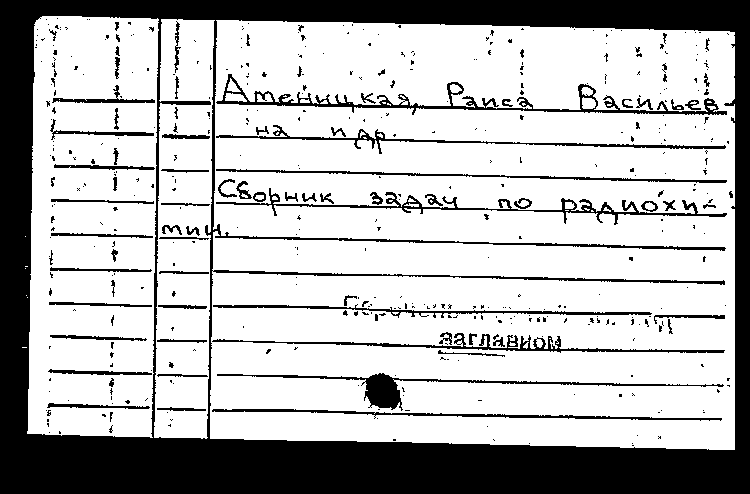 Атеницкая, Раиса Васильев-
на и др.
Сборник задач по радиохи-
мии.
заглавном